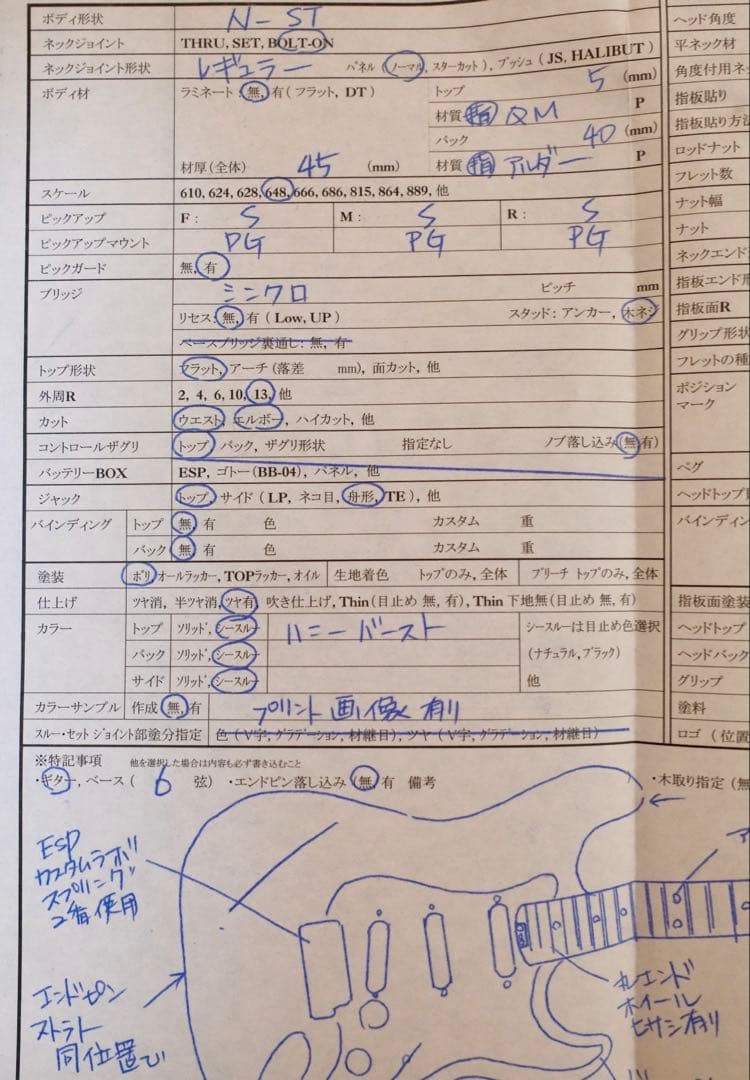 ボディ形状 N-ST
ネックジョイント THRU, SET, BOLT-ON
ネックジョイント形状 レギュラー パネル (ノーマル, スターカット), ブッシュ (JS, HALIBUT)
ボディ材 ラミネート: 無, 有 (フラット, DT) トップ 5 (mm)
材質 指 QM P
バック 40 (mm)
材厚(全体) 45 (mm) 材質 指 アルダー P
スケール 610, 624, 628, 648, 666, 686, 815, 864, 889, 他
ピックアップ F: S M: S R: S
ピックアップマウント PG PG PG
ピックガード 無, 有
ブリッジ シンクロ ピッチ mm
リセス: 無, 有 (Low, UP) スタッド: アンカー, 木ネジ
ベースブリッジ裏通し: 無, 有
トップ形状 フラット, アーチ (落差 mm), 面カット, 他
外周R 2, 4, 6, 10, 13, 他
カット ウエスト, エルボー, ハイカット, 他
コントロールザグリ トップ, バック, ザグリ形状 指定なし ノブ落し込み (無, 有)
バッテリーBOX ESP, ゴトー (BB-04), パネル, 他
ジャック トップ, サイド (LP, ネコ目, 舟形, TE), 他
バインディング トップ 無, 有 色 カスタム 重
バック 無, 有 色 カスタム 重
塗装 ポリ, オールラッカー, TOPラッカー, オイル 生地着色 トップのみ, 全体 ブリーチ トップのみ, 全体
仕上げ ツヤ消, 半ツヤ消, ツヤ有, 吹き仕上げ, Thin (目止め 無, 有), Thin 下地無 (目止め 無, 有)
カラー トップ ソリッド, シースルー ハニーバースト シースルーは目止め色選択
バック ソリッド, シースルー (ナチュラル, ブラック)
サイド ソリッド, シースルー 他
カラーサンプル 作成 無, 有 プリント画像有り
スルー・セット ジョイント部塗分指定 色 (V字, グラデーション, 材継目), ツヤ (V字, グラデーション, 材継目)
※特記事項 他を選択した場合は内容も必ず書き込むこと
・ギター, ベース ( 6 弦) ・エンドピン落し込み (無, 有 備考 ・木取り指定 (無
ESP
カスタムラボ
スプリング
2番使用
エンドピン
ストラト
同位置で
丸エンド
ホイール
ヒサシ有り
ヘッド角度
平ネック材
角度付用ネッ
指板貼り
指板貼り方法
ロッドナット
フレット数
ナット幅
ナット
ネックエンド
指板エンド形
指板面R
グリップ形状
フレットの種
ポジション
マーク
ペグ
ヘッドトップ
バインディン
指板面塗装
ヘッドトップ
ヘッドバック
グリップ
塗料
ロゴ (位置